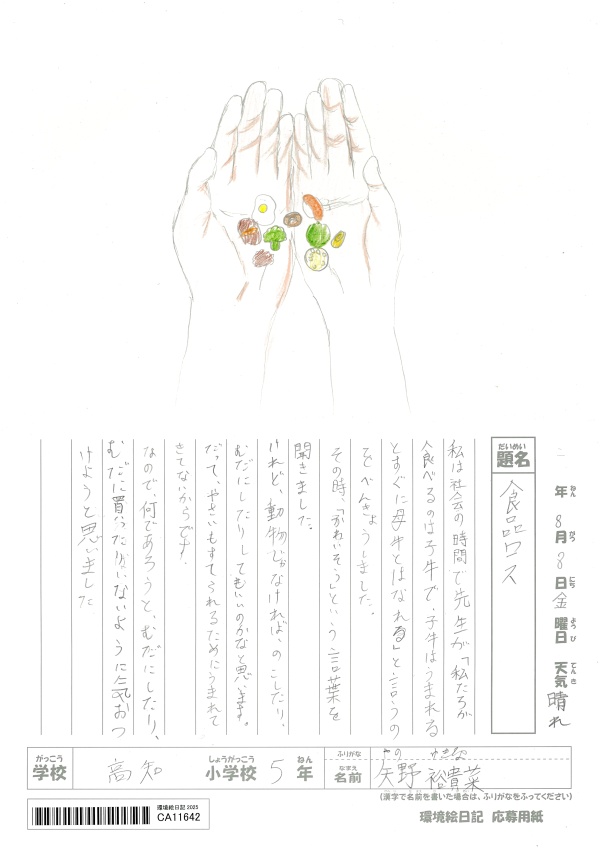 年 8月 8日 金曜日 天気 晴れ
ねん がつ にち ようび てんき
だいめい
題名
食品ロス
私は社会の時間で先生が「私たちが
食べるのは子牛で、子牛はうまれる
とすぐに母牛とはなれる」と言うの
をべんきょうしました。
その時、「かわいそう」という言葉を
聞きました。
けれど、動物じゃなければ、のこしたり、
むだにしたりしてもいいのかなと思います。
だって、やさいもすてられるためにうまれて
きてないからです。
なので、何であろうと、むだにしたり、
むだに買ったりがいないように気おつ
けようと思いました
がっこう
学校
高知
しょうがっこう
小学校
5
ねん
年
ふりがな
やの ゆきな
なまえ
名前
矢野 裕貴菜
(漢字で名前を書いた場合は、ふりがなをふってください)
環境絵日記 2025
CA11642
環境絵日記 応募用紙